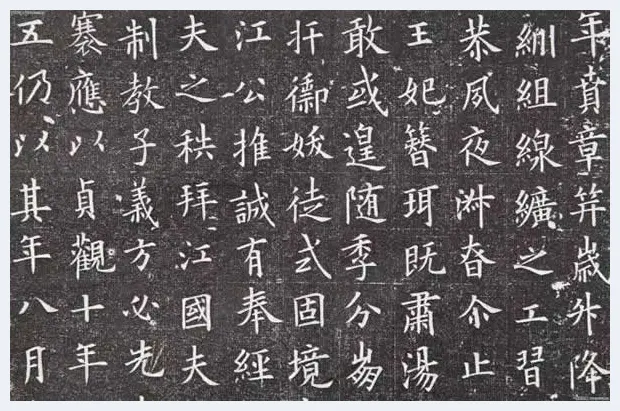 年賁章笄歲升降
紃組線纊之工習
恭夙夜淑昚尒止
王妃簪珥既肅湯
敢或遑随季分崩
扞禦徒式固境
江公推誠有奉經
夫之秩拜江國夫
制教子義方必先
褰應以貞觀十年
五仍以其年八月